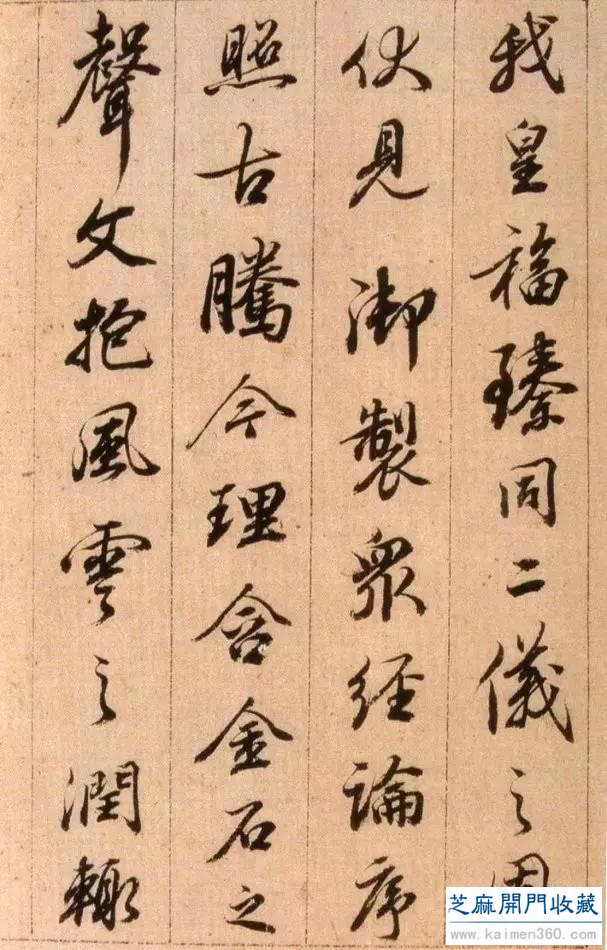 我皇福臻同二儀之固
伏見御製衆經論序
照古騰今理含金石之
聲文抱風雲之潤輙
芝麻開門收藏
www.kaimen360.com